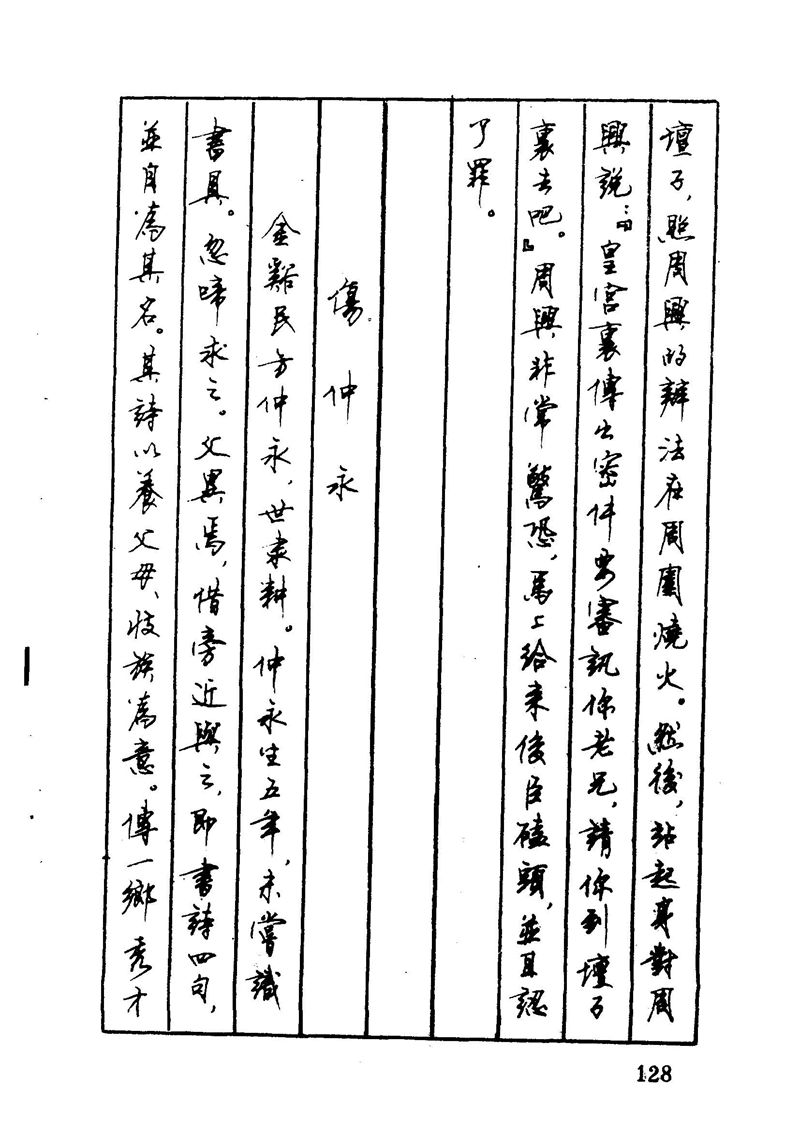 壇子，照周興的辦法在周圍燒火。然後，站起身對周
興說：『皇宮裏傳出密件要審訊你老兄，請你到壇子
裏去吧。』周興非常驚恐，馬上給來俊臣磕頭，並且認
了罪。
傷仲永
金谿民方仲永，世隶耕。仲永生五年，未嘗識
書具。忽啼求之。父異焉，借旁近與之，即書詩四句，
並自為其名。其詩以養父母、收族為意。傳一鄉秀才
128